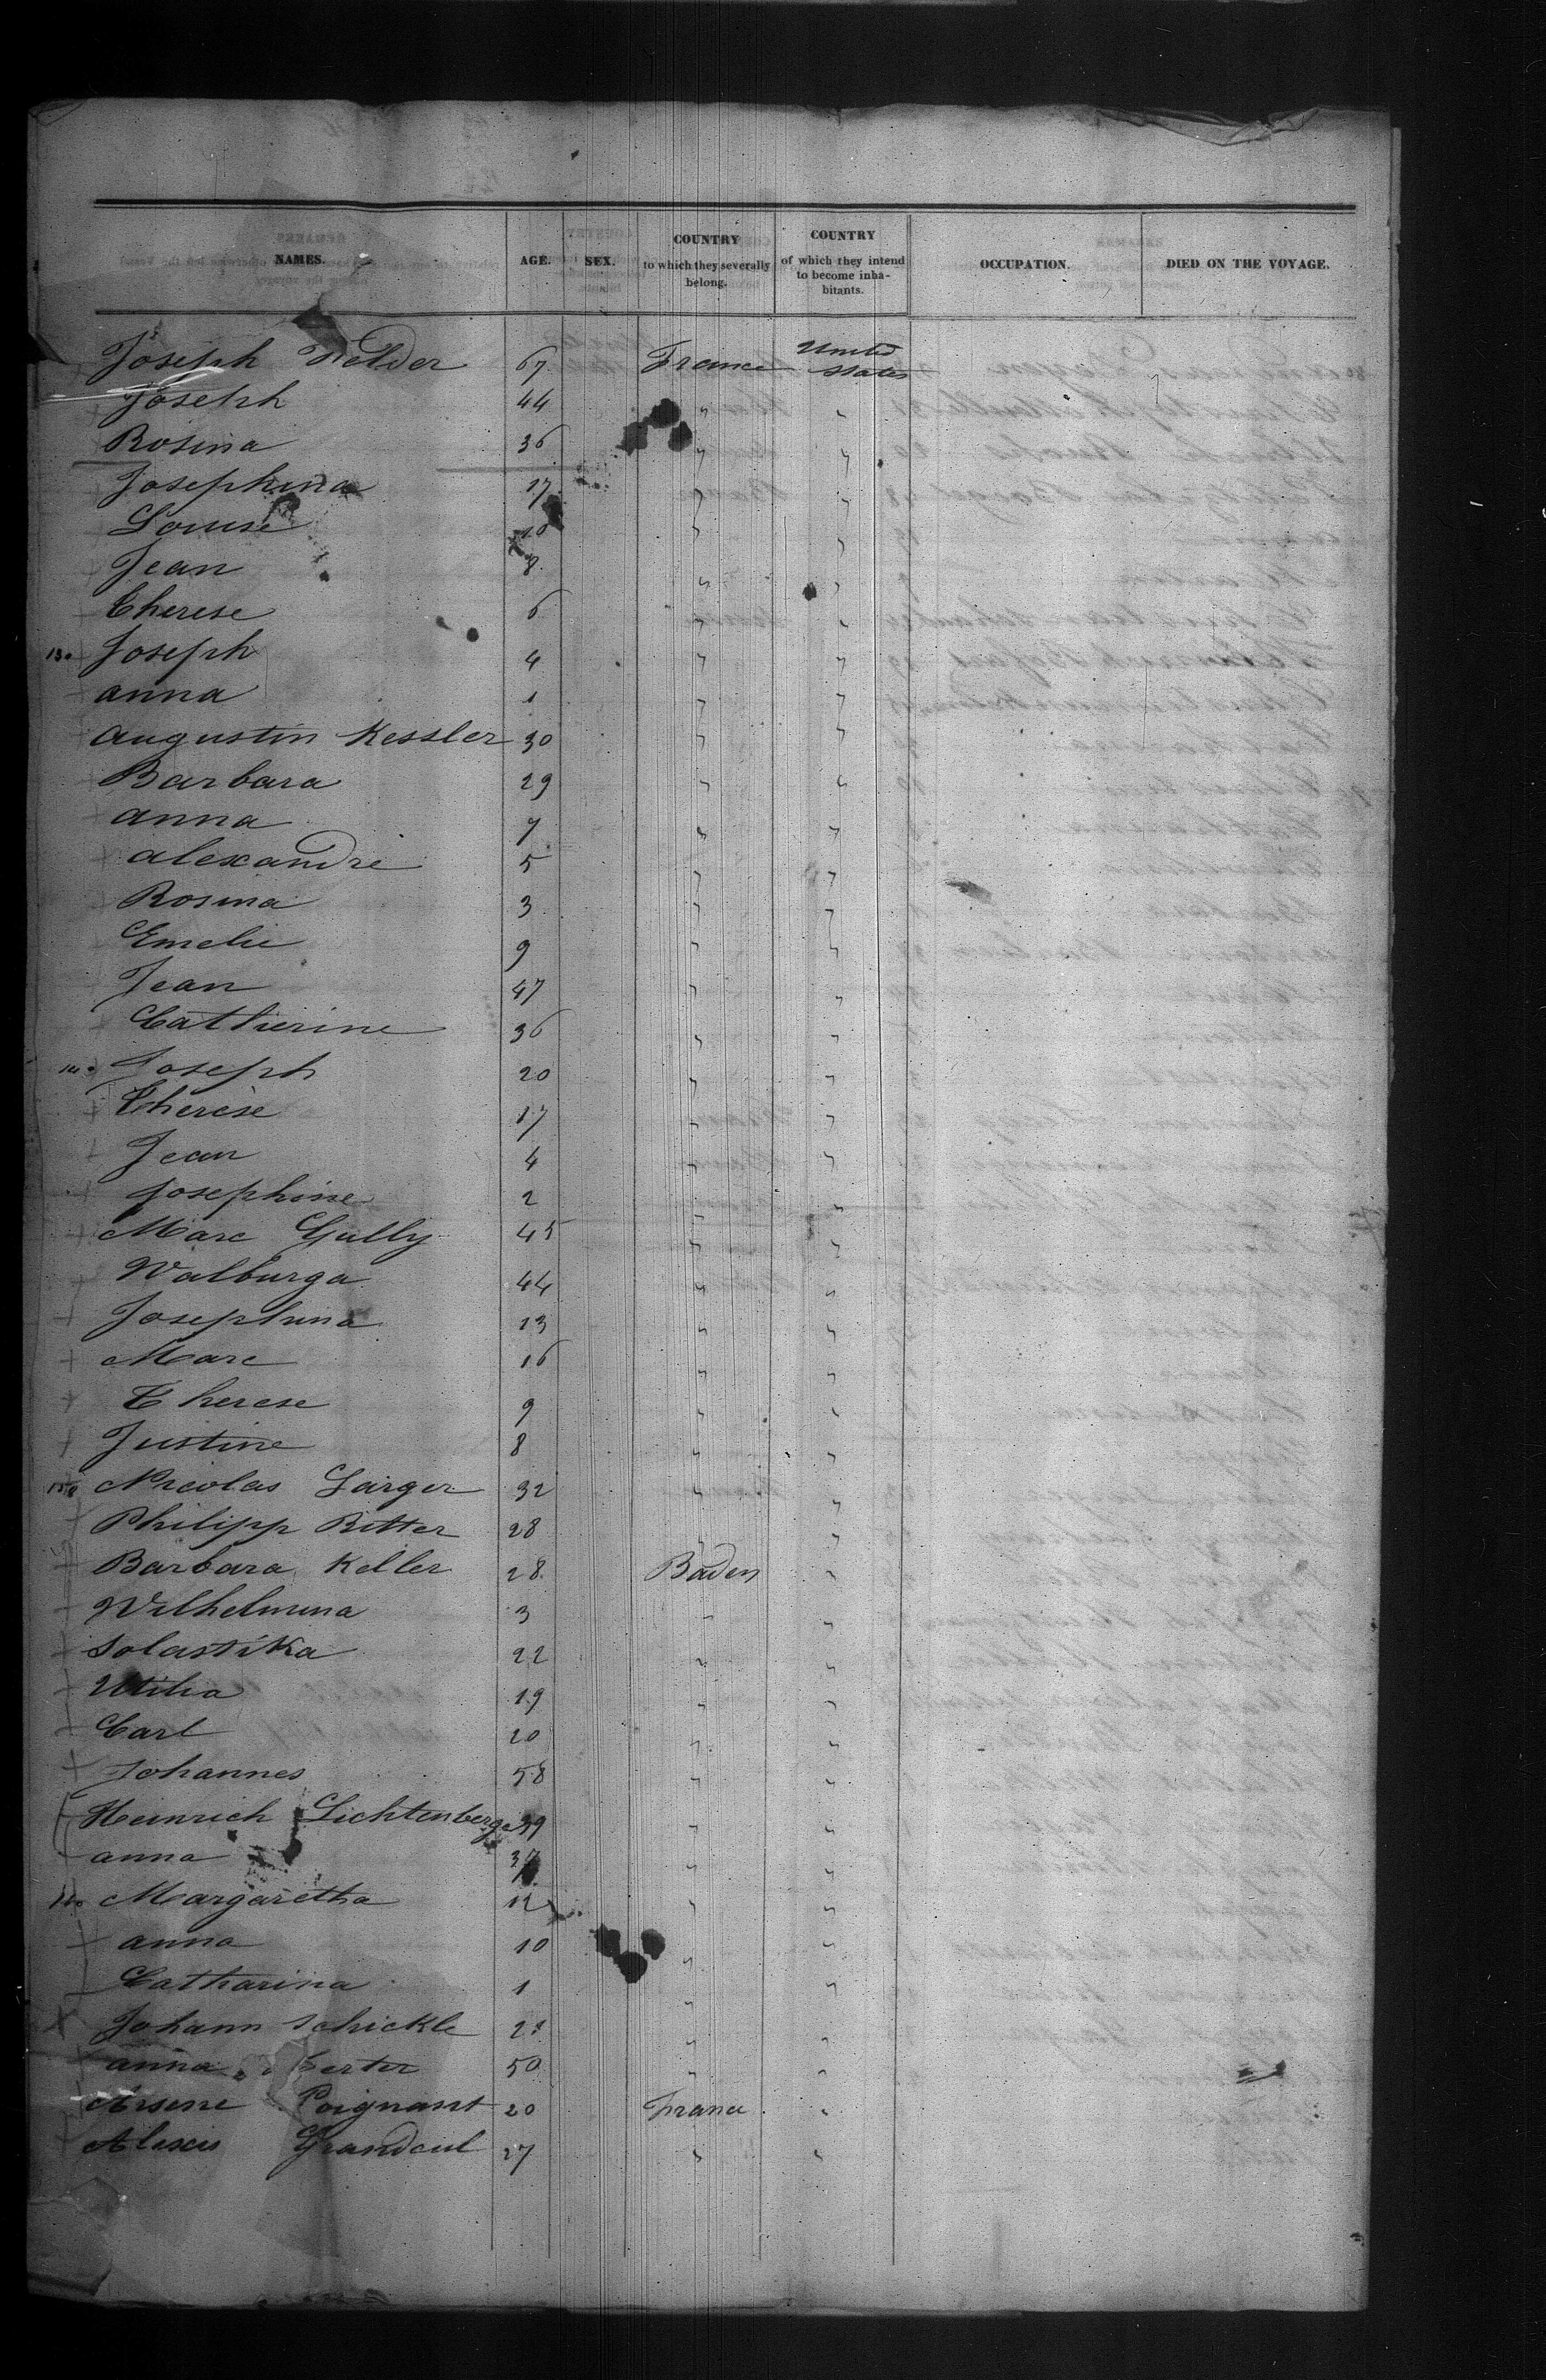 NAMES. AGE. SEX. COUNTRY to which they severally belong. COUNTRY of which they intend to become inhabitants. OCCUPATION. DIED ON THE VOYAGE.
Joseph Helder 67 France United States
Joseph 44 " "
Rosina 36 " "
Josephina 17 " "
Louise 10 " "
Jean 8 " "
Therese 6 " "
130 Joseph 4 " "
anna 1 " "
Augustin Kessler 30 " "
Barbara 29 " "
anna 7 " "
alexandre 5 " "
Rosina 3 " "
Emelie 9 " "
Jean 47 " "
Catherine 36 " "
140 Joseph 20 " "
Therese 17 " "
Jean 4 " "
Josephine 2 " "
Marc Gully 45 " "
Walburga 44 " "
Josephina 13 " "
Marc 16 " "
Therese 9 " "
Justine 8 " "
150 Nicolas Larger 32 " "
Philipp Ritter 28 " "
Barbara Keller 28 Baden "
Wilhelmina 3 " "
Solastika 22 " "
Utilia 19 " "
Carl 20 " "
Johannes 58 " "
Heinrich Lichtenberger 39 " "
anna " "
Margaretha 12 " "
anna 10 " "
Catharina 1 " "
Johann Schickle " "
anna 50 " "
Arsene Poignant 20 France "
Alexis 27 " "